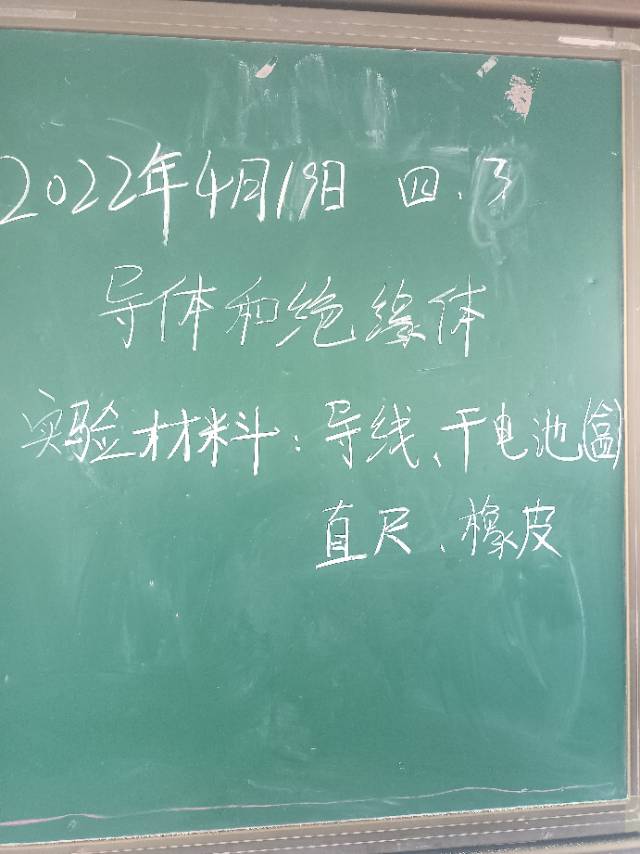 2022年4月19日 四.3
导体和绝缘体
实验材料：导线、干电池(盒)
直尺、橡皮